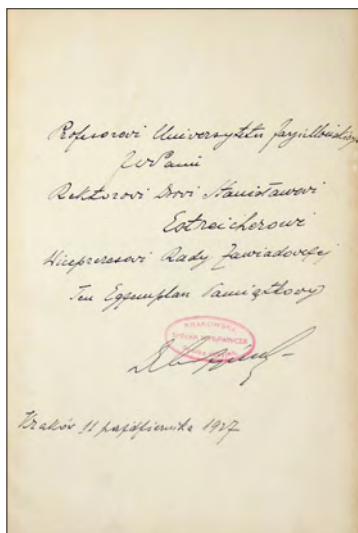 Profesorowi Uniwersytetu Jagiellońskiego
JWPanu
Rektorowi Drowi Stanisławowi
Estreicherowi
Wiceprezesowi Rady Zawiadowczej
Ten Egzemplarz Pamiątkowy
KRAKOWSKA
SPÓŁKA WYDAWNICZA
Kraków 11 października 1927